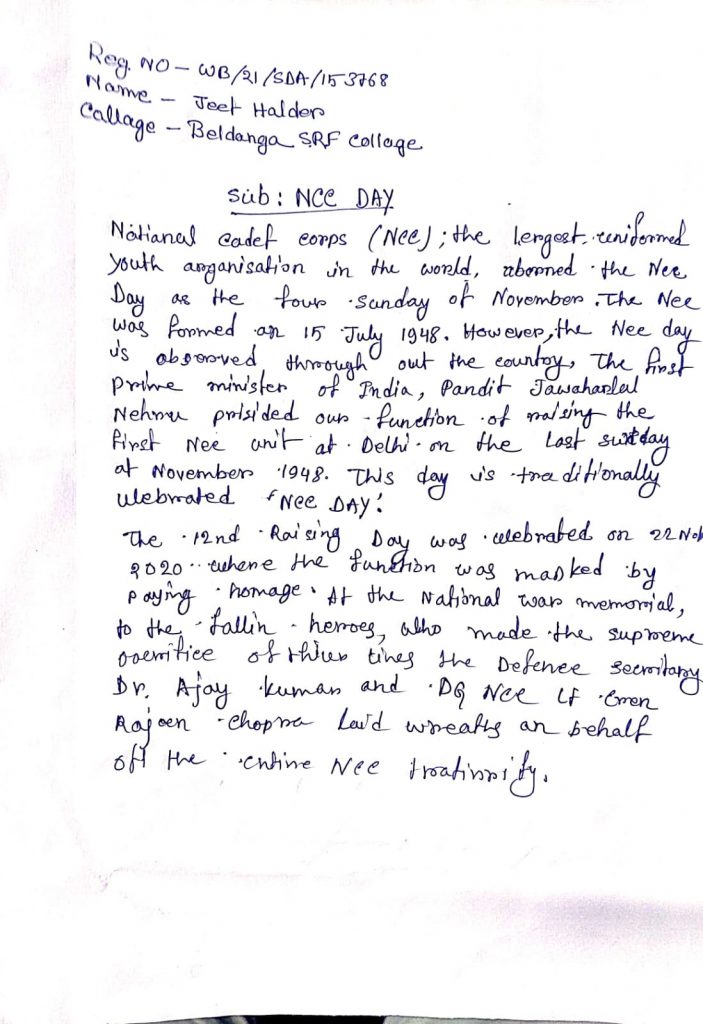 Reg. NO - WB/21/SDA/153768
Name - Jeet Halder
Callage - Beldanga SRF College
Sub : NCC DAY
National cadet corps (NCC) ; the lergest uniformed
youth organisation in the world, abonned the Nce
Day as the four sunday of November. The Nce
was formed an 15 July 1948. However, the Nce day
is obsorved through out the country, The first
prime minister of India, Pandit Jawaharlal
Nehru prisided our function of raising the
first Nce unit at Delhi on the last sunday
at November 1948. This day is traditionally
ulebrated 'NCC DAY'
The 12nd Raising Day was celebrated on 22 Nob
2020 .. where the function was marked by
paying homage. At the National war memorial,
to the fallin heroes, who made the supreme
of thier tines the Defence secritary
Dr. Ajay kumar and DG NCC Lt Gren
Rajeen chopra laid wreaths an behalf
off the entire Nce